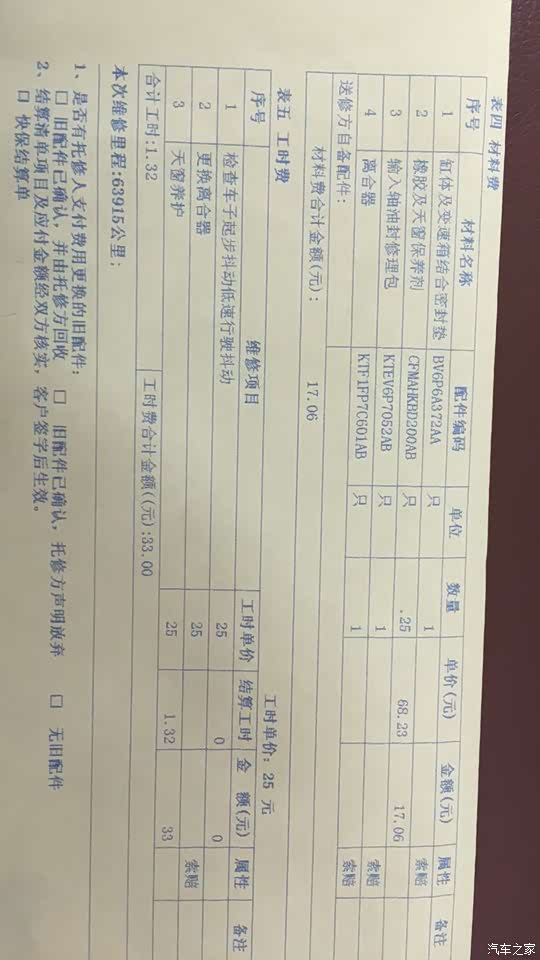 表四 材料费
序号 材料名称 配件编码 单位 数量 单价(元) 金额(元) 属性 备注
1 缸体及变速箱结合密封垫 BV6P6A372AA 只 1 索赔
2 橡胶及天窗保养剂 CFMAHKBD200AB 只 .25 68.23 17.06
3 输入轴油封修理包 KTEV6P7052AB 只 1 索赔
4 离合器 KTF1FP7C601AB 只 1 索赔
送修方自备配件:
材料费合计金额(元): 17.06
表五 工时费 工时单价: 25 元
序号 维修项目 工时单价 结算工时 金 额(元) 属性 备注
1 检查车子起步抖动低速行驶抖动 25 0 0
2 更换离合器 25 索赔
3 天窗养护 25 1.32 33
合计工时:1.32 工时费合计金额((元):33.00
本次维修里程:63915公里;
1、是否有托修人支付费用更换的旧配件:
□ 旧配件已确认,并由托修方回收 □ 旧配件已确认,托修方声明放弃 □ 无旧配件
2、结算清单项目及应付金额经双方核实,客户签字后生效。
□ 快保结算单
汽车之家